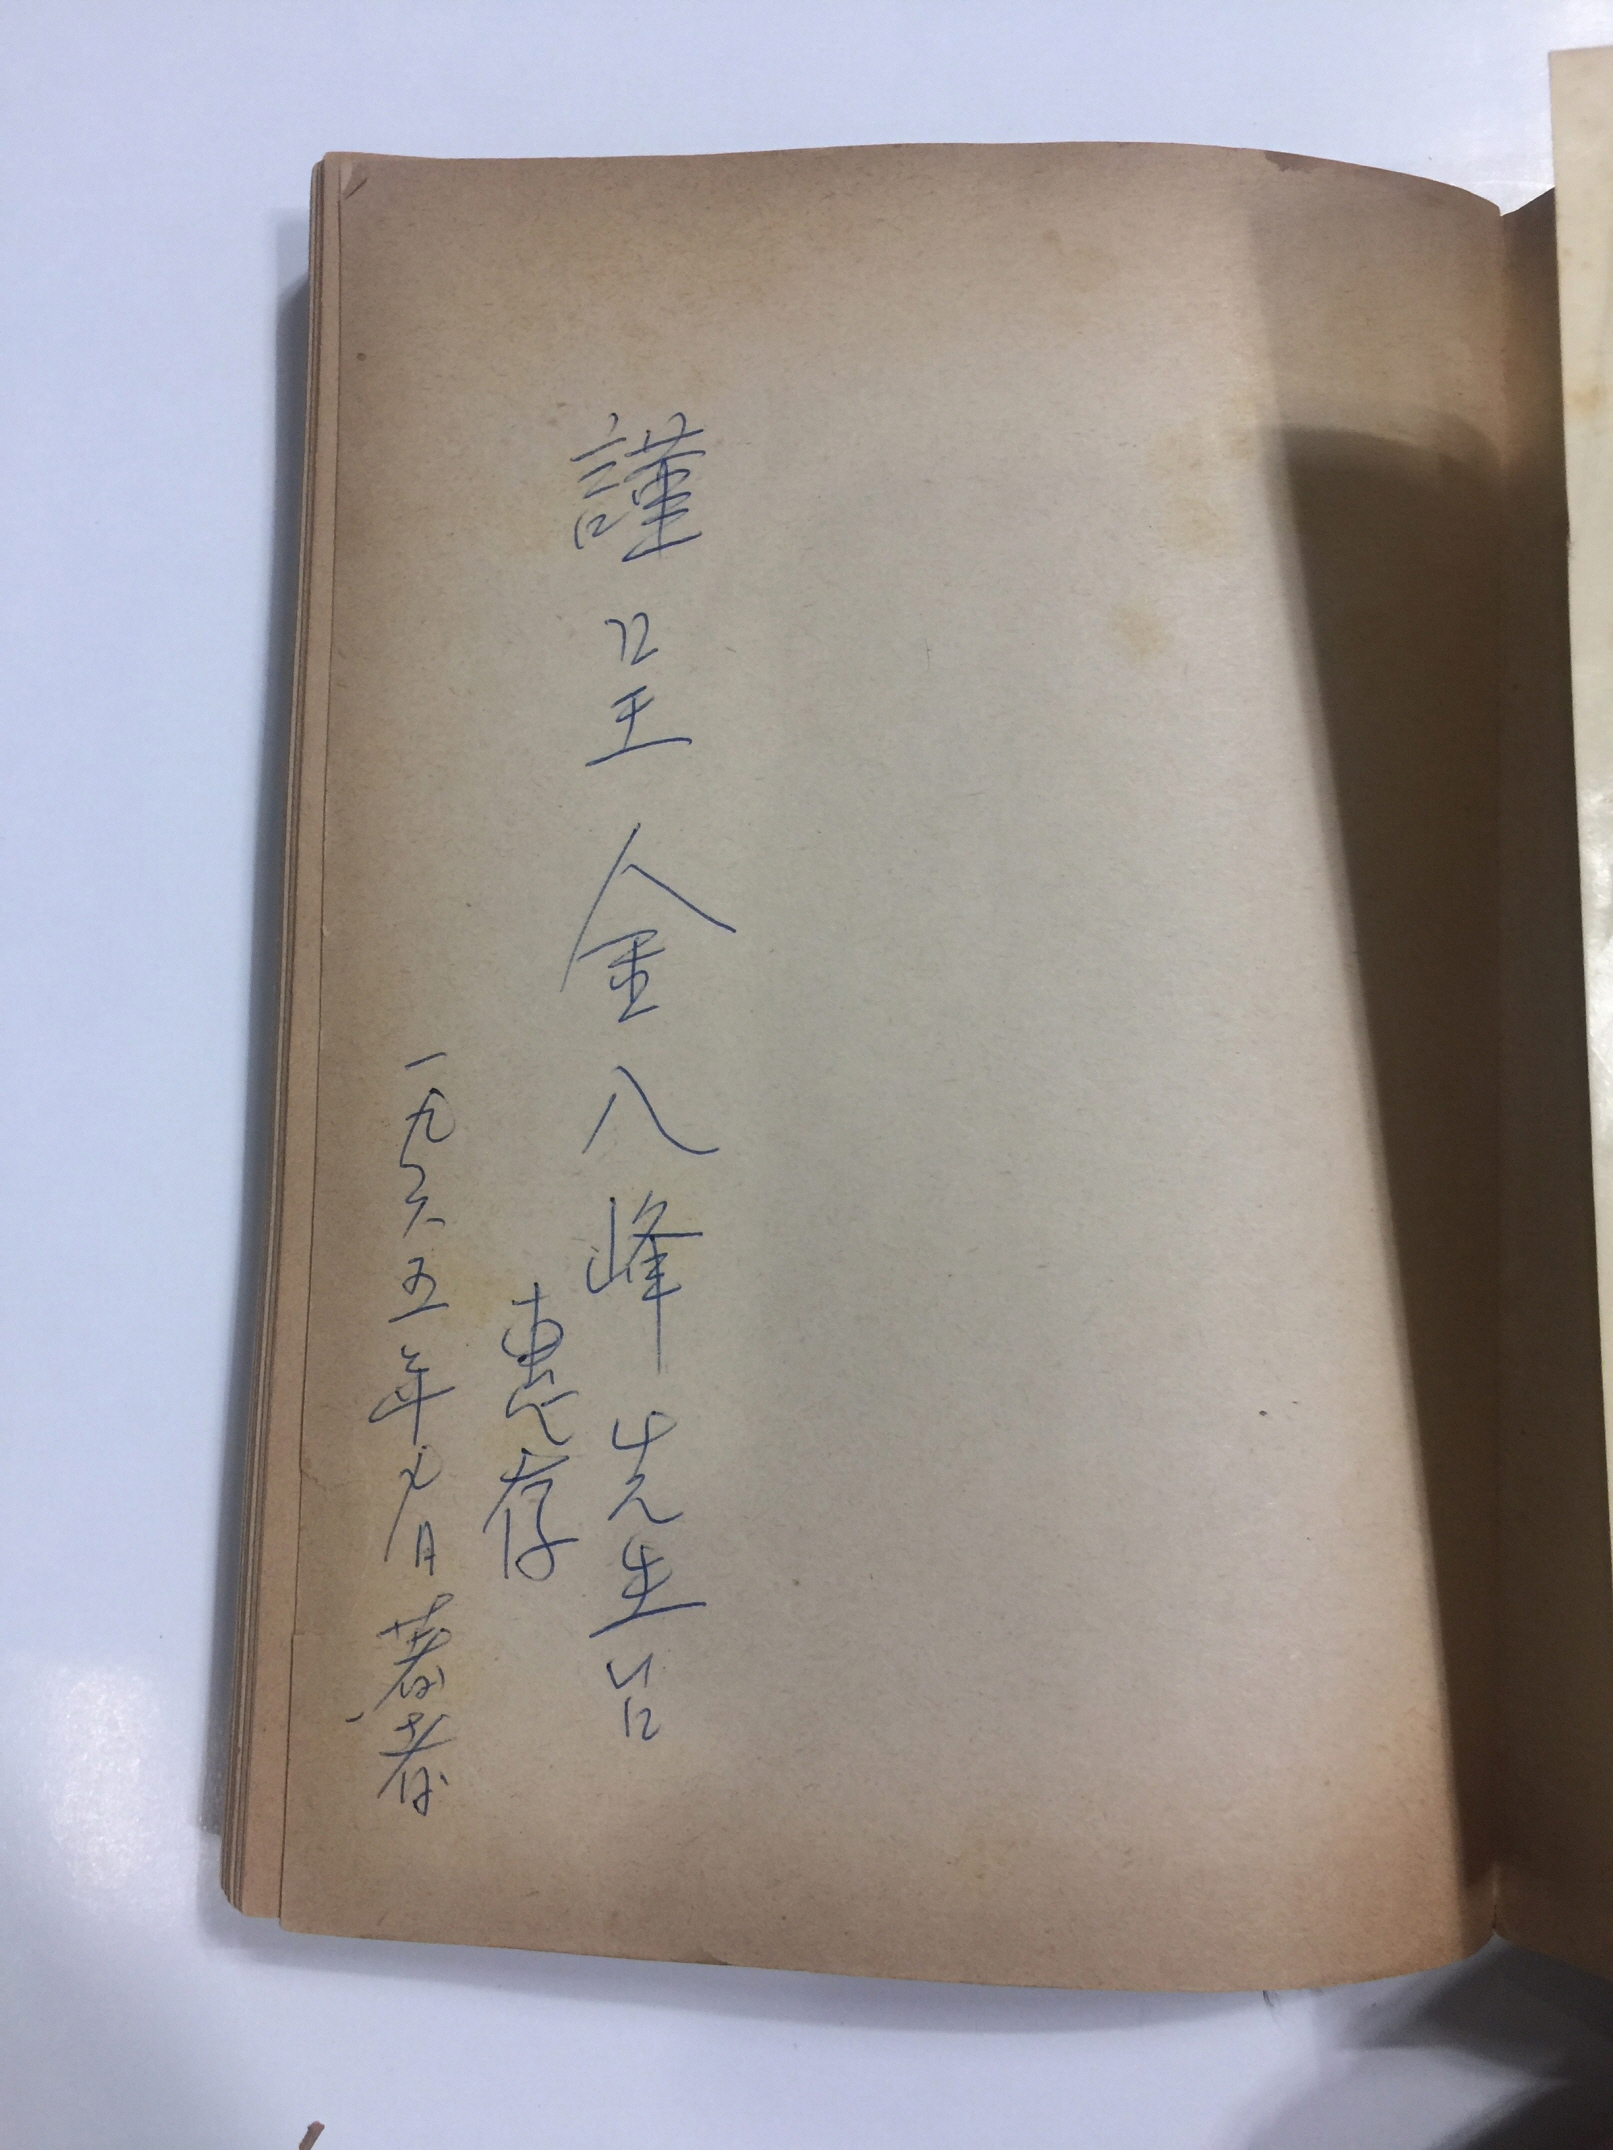 謹呈 金八峰 先生台
惠存
一九六五年 九月 著者